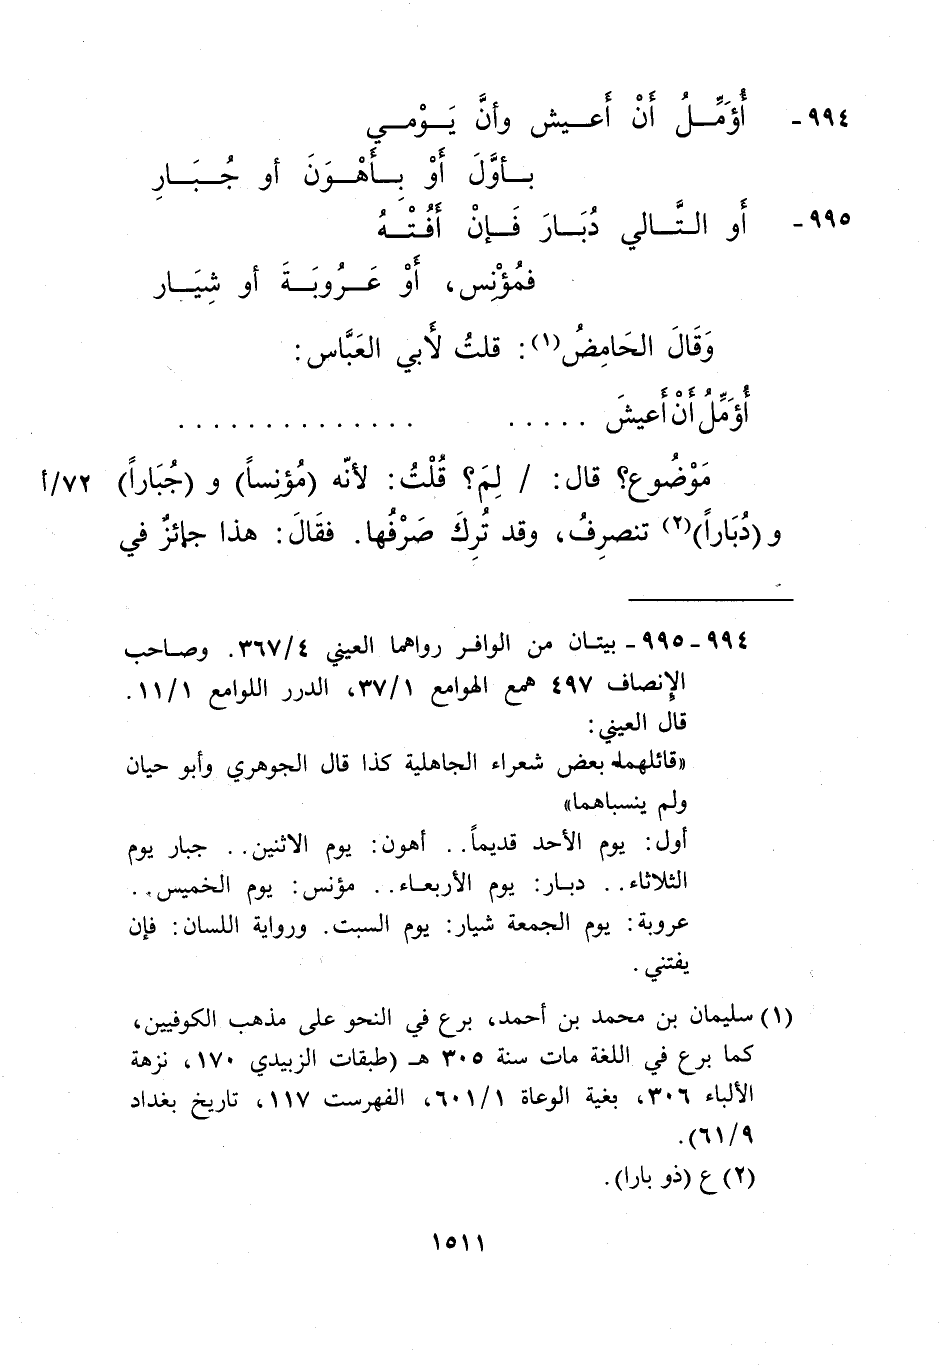 ٩٩٤- أُؤَمِّلُ أَنْ أَعيش وأنَّ يَوْمي
بأوَّلَ أَوْ بِأَهْوَنَ أو جُبَارِ
٩٩٥- أَو التَّالي دُبَارَ فَإنْ أَفُتْهُ
فمُؤْنِس، أَوْ عَرُوبَةَ أو شِيَار
وَقَالَ الحَامِضُ(١): قلتُ لأَبي العَبَّاس:
أُؤَمِّلُ أَنْ أَعيشَ ..... ..............
مَوْضُوع؟ قال: / لِمَ؟ قُلْتُ: لأنّه (مُؤنِساً) و (جُبَاراً) ٧٢/أ
و (دُبَاراً)(٢) تنصرِفُ، وقد تُرِكَ صَرْفُها. فقَالَ: هذا جائزٌ في
٩٩٤ـ ٩٩٥ـ بيتان من الوافر رواهما العيني ٣٦٧/٤. وصاحب
الإنصاف ٤٩٧ همع الهوامع ٣٧/١، الدرر اللوامع ١١/١.
قال العيني:
«قائلهما بعض شعراء الجاهلية كذا قال الجوهري وأبو حيان
ولم ينسباهما»
أول: يوم الأحد قديماً.. أهون: يوم الاثنين.. جبار يوم
الثلاثاء.. دبار: يوم الأربعاء.. مؤنس: يوم الخميس..
عروبة: يوم الجمعة شيار: يوم السبت. ورواية اللسان: فإن
يفتني.
(١) سليمان بن محمد بن أحمد، برع في النحو على مذهب الكوفيين،
كما برع في اللغة مات سنة ٣٠٥ هـ (طبقات الزبيدي ١٧٠، نزهة
الألباء ٣٠٦، بغية الوعاة ٦٠١/١، الفهرست ١١٧، تاريخ بغداد
٦١/٩).
(٢) ع (ذو بارا).
١٥١١